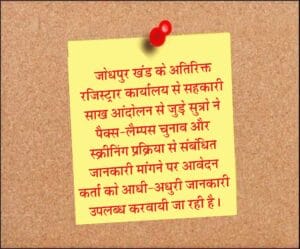 जोधपुर खंड के अतिरिक्त
रजिस्ट्रार कार्यालय से सहकारी
साख आंदोलन से जुड़े सुत्रो ने
पैक्स-लैम्पस चुनाव और
स्क्रीनिंग प्रक्रिया से संबंधित
जानकारी मांगने पर आवेदन
कर्ता को आधी-अधुरी जानकारी
उपलब्ध करवायी जा रही है।